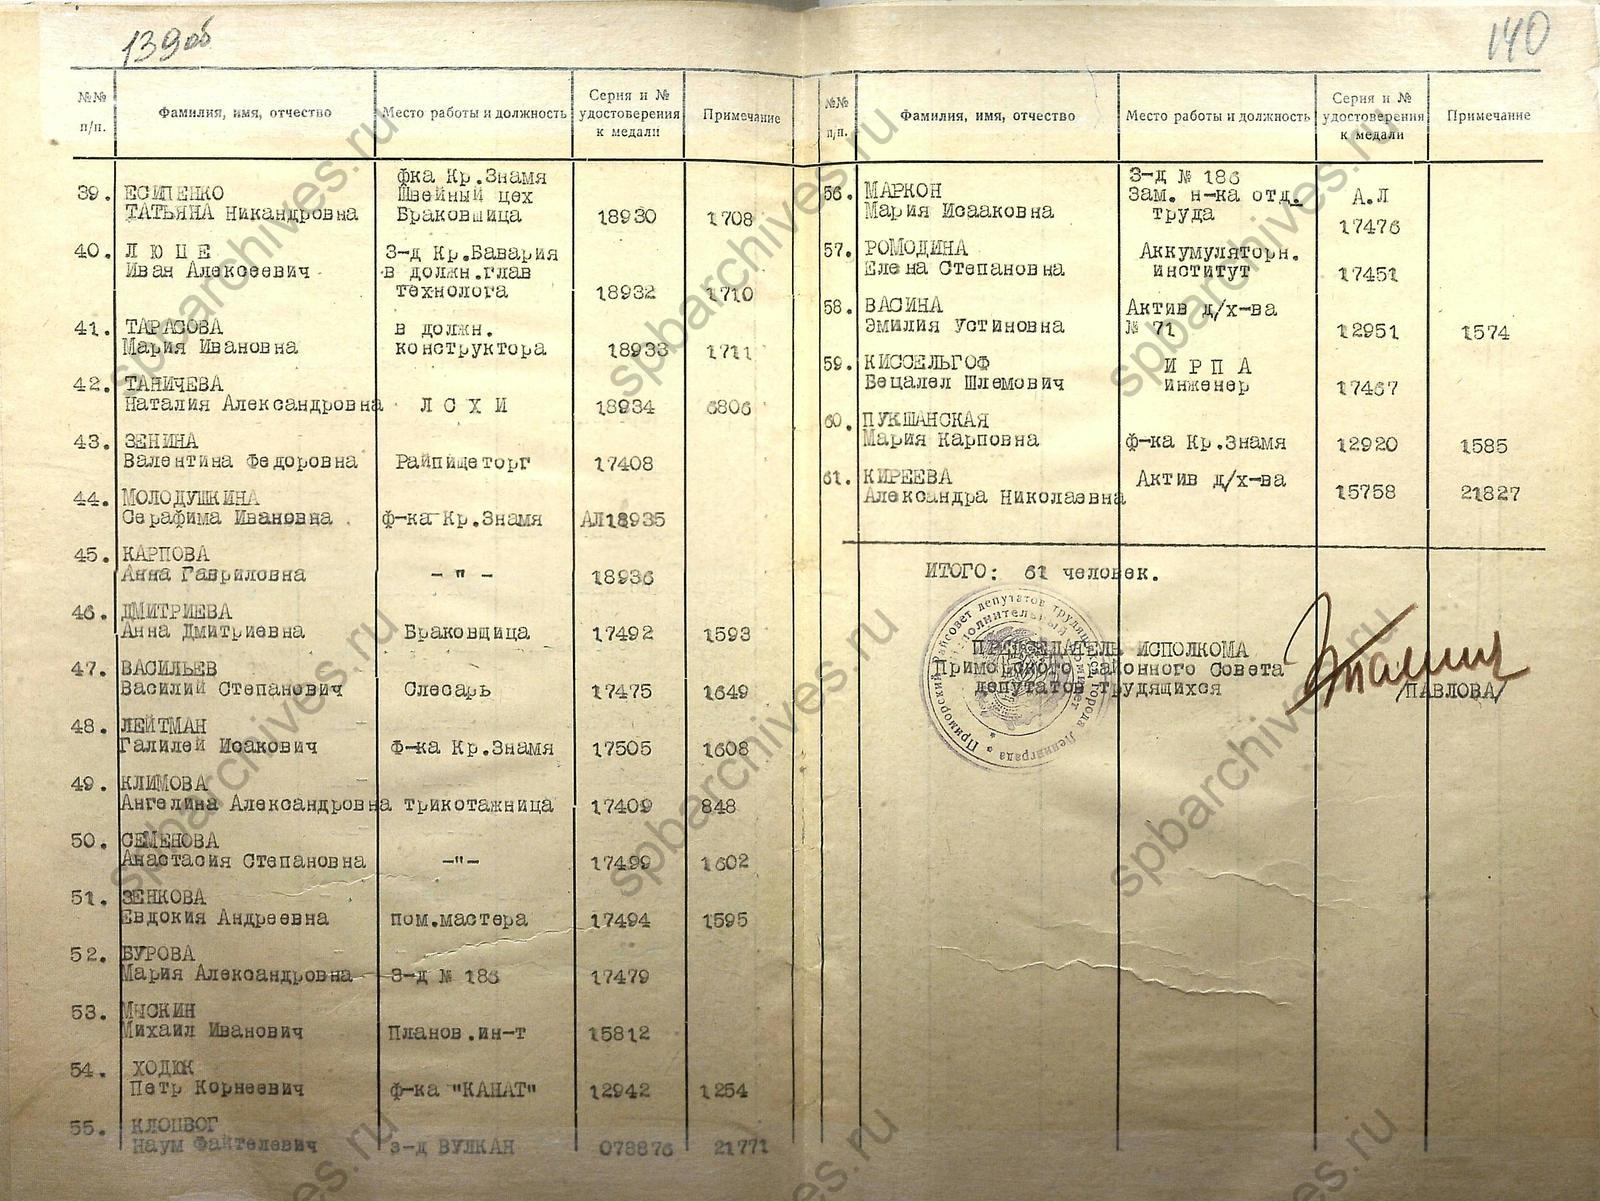 139об
№№ п/п. Фамилия, имя, отчество Место работы и должность Серия и № удостоверения к медали Примечание
фка Кр.Знамя
39. ЕСИПЕНКО Швейный цех
ТАТЬЯНА Никандровна Браковщица 18930 1708
40. Л Ю Ц Е З-д Кр.Бавария
Иван Алексеевич в должн.глав
технолога 18932 1710
41. ТАРАСОВА в должн.
Мария Ивановна конструктора 18933 1711
42. ТАНИЧЕВА
Наталия Александровна Л С Х И 18934 6806
43. ЗЕНИНА
Валентина Федоровна Райпищеторг 17408
44. МОЛОДУШКИНА
Серафима Ивановна ф-ка Кр.Знамя АЛ18935
45. КАРПОВА
Анна Гавриловна - " - 18936
46. ДМИТРИЕВА
Анна Дмитриевна Браковщица 17492 1593
47. ВАСИЛЬЕВ
Василий Степанович Слесарь 17475 1649
48. ЛЕЙТМАН
Галилей Исакович ф-ка Кр.Знамя 17505 1608
49. КЛИМОВА
Ангелина Александровна трикотажница 17409 848
50. СЕМЕНОВА
Анастасия Степановна -"- 17499 1602
51. ЗЕНКОВА
Евдокия Андреевна пом.мастера 17494 1595
52. БУРОВА
Мария Александровна З-д № 186 17479
53. МЫСКИН
Михаил Иванович Планов.ин-т 15812
54. ХОДЮК
Петр Корнеевич ф-ка "КАНАТ" 12942 1254
55. КЛОЦВОГ
Наум Файтелевич з-д ВУЛКАН 078876 21771
140
№№ п/п. Фамилия, имя, отчество Место работы и должность Серия и № удостоверения к медали Примечание
З-д № 186
56. МАРКОН Зам. н-ка отд. А.Л
Мария Исааковна труда 17476
57. РОМОДИНА Аккумуляторн.
Елена Степановна институт 17451
58. ВАСИНА Актив д/х-ва
Эмилия Устиновна № 71 12951 1574
59. КИССЕЛЬГОФ И Р П А
Бецалел Шлемович инженер 17467
60. ПУКШАНСКАЯ
Мария Карповна ф-ка Кр.Знамя 12920 1585
61. КИРЕЕВА Актив д/х-ва
Александра Николаевна 15758 21827
ИТОГО: 61 человек.
ПРЕДСЕДАТЕЛЬ ИСПОЛКОМА
Приморского районного Совета
депутатов трудящихся /ПАВЛОВА/
Приморский райсовет депутатов трудящихся города Ленинграда
Исполнительный комитет
spbarchives.ru